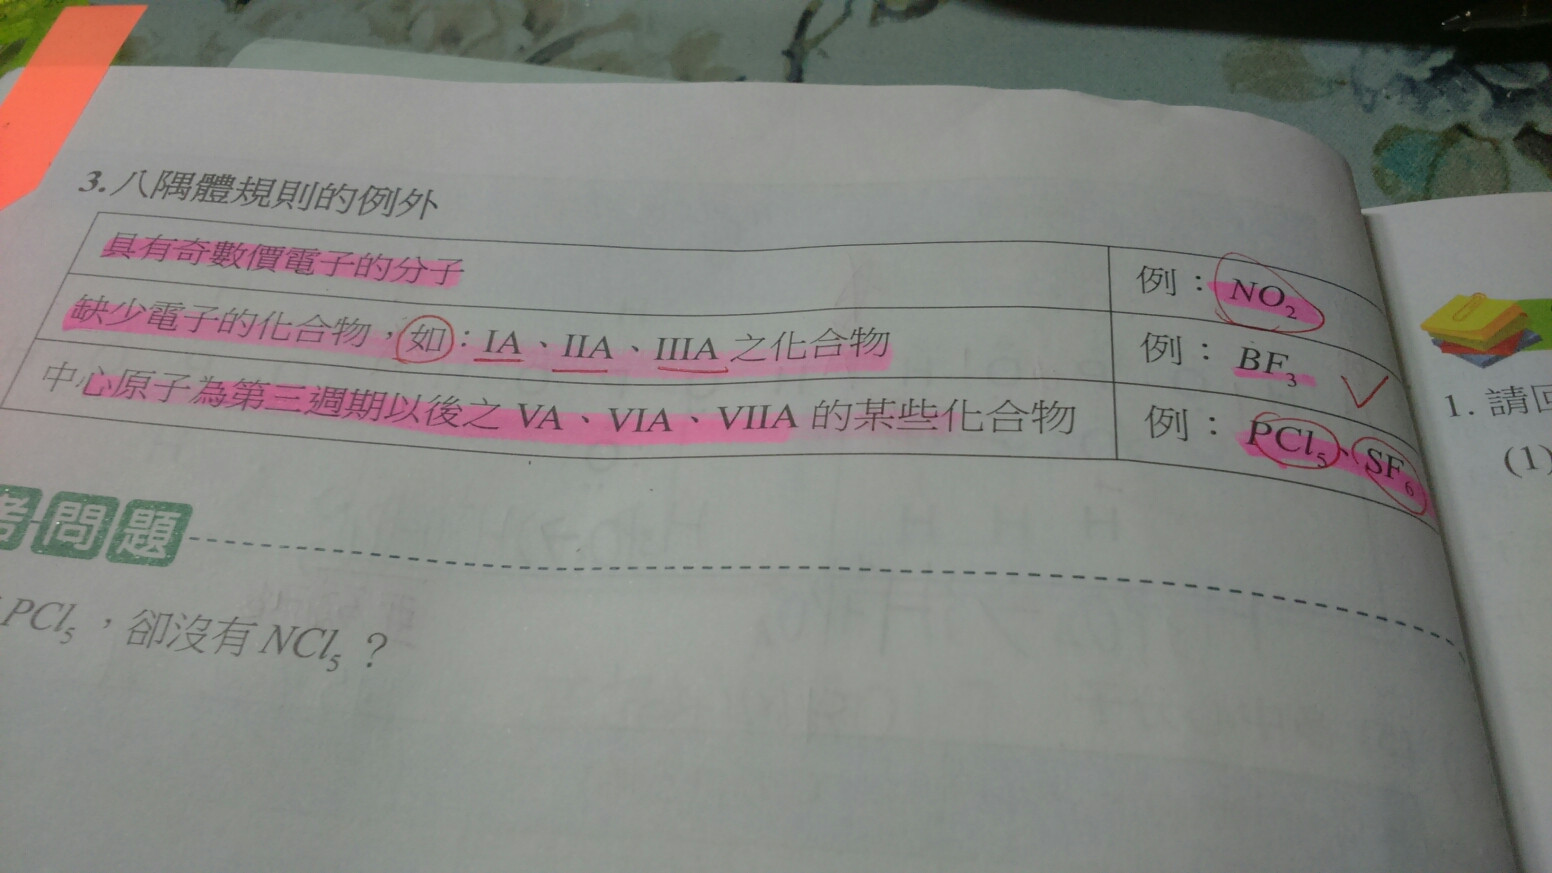 3. 八隅體規則的例外
具有奇數價電子的分子 例：NO₂
缺少電子的化合物，如：IA、IIA、IIIA 之化合物 例：BF₃
中心原子為第三週期以後之 VA、VIA、VIIA 的某些化合物 例：PCl₅、SF₆
問題
PCl₅，卻沒有 NCl₅？
1. 請
(1)